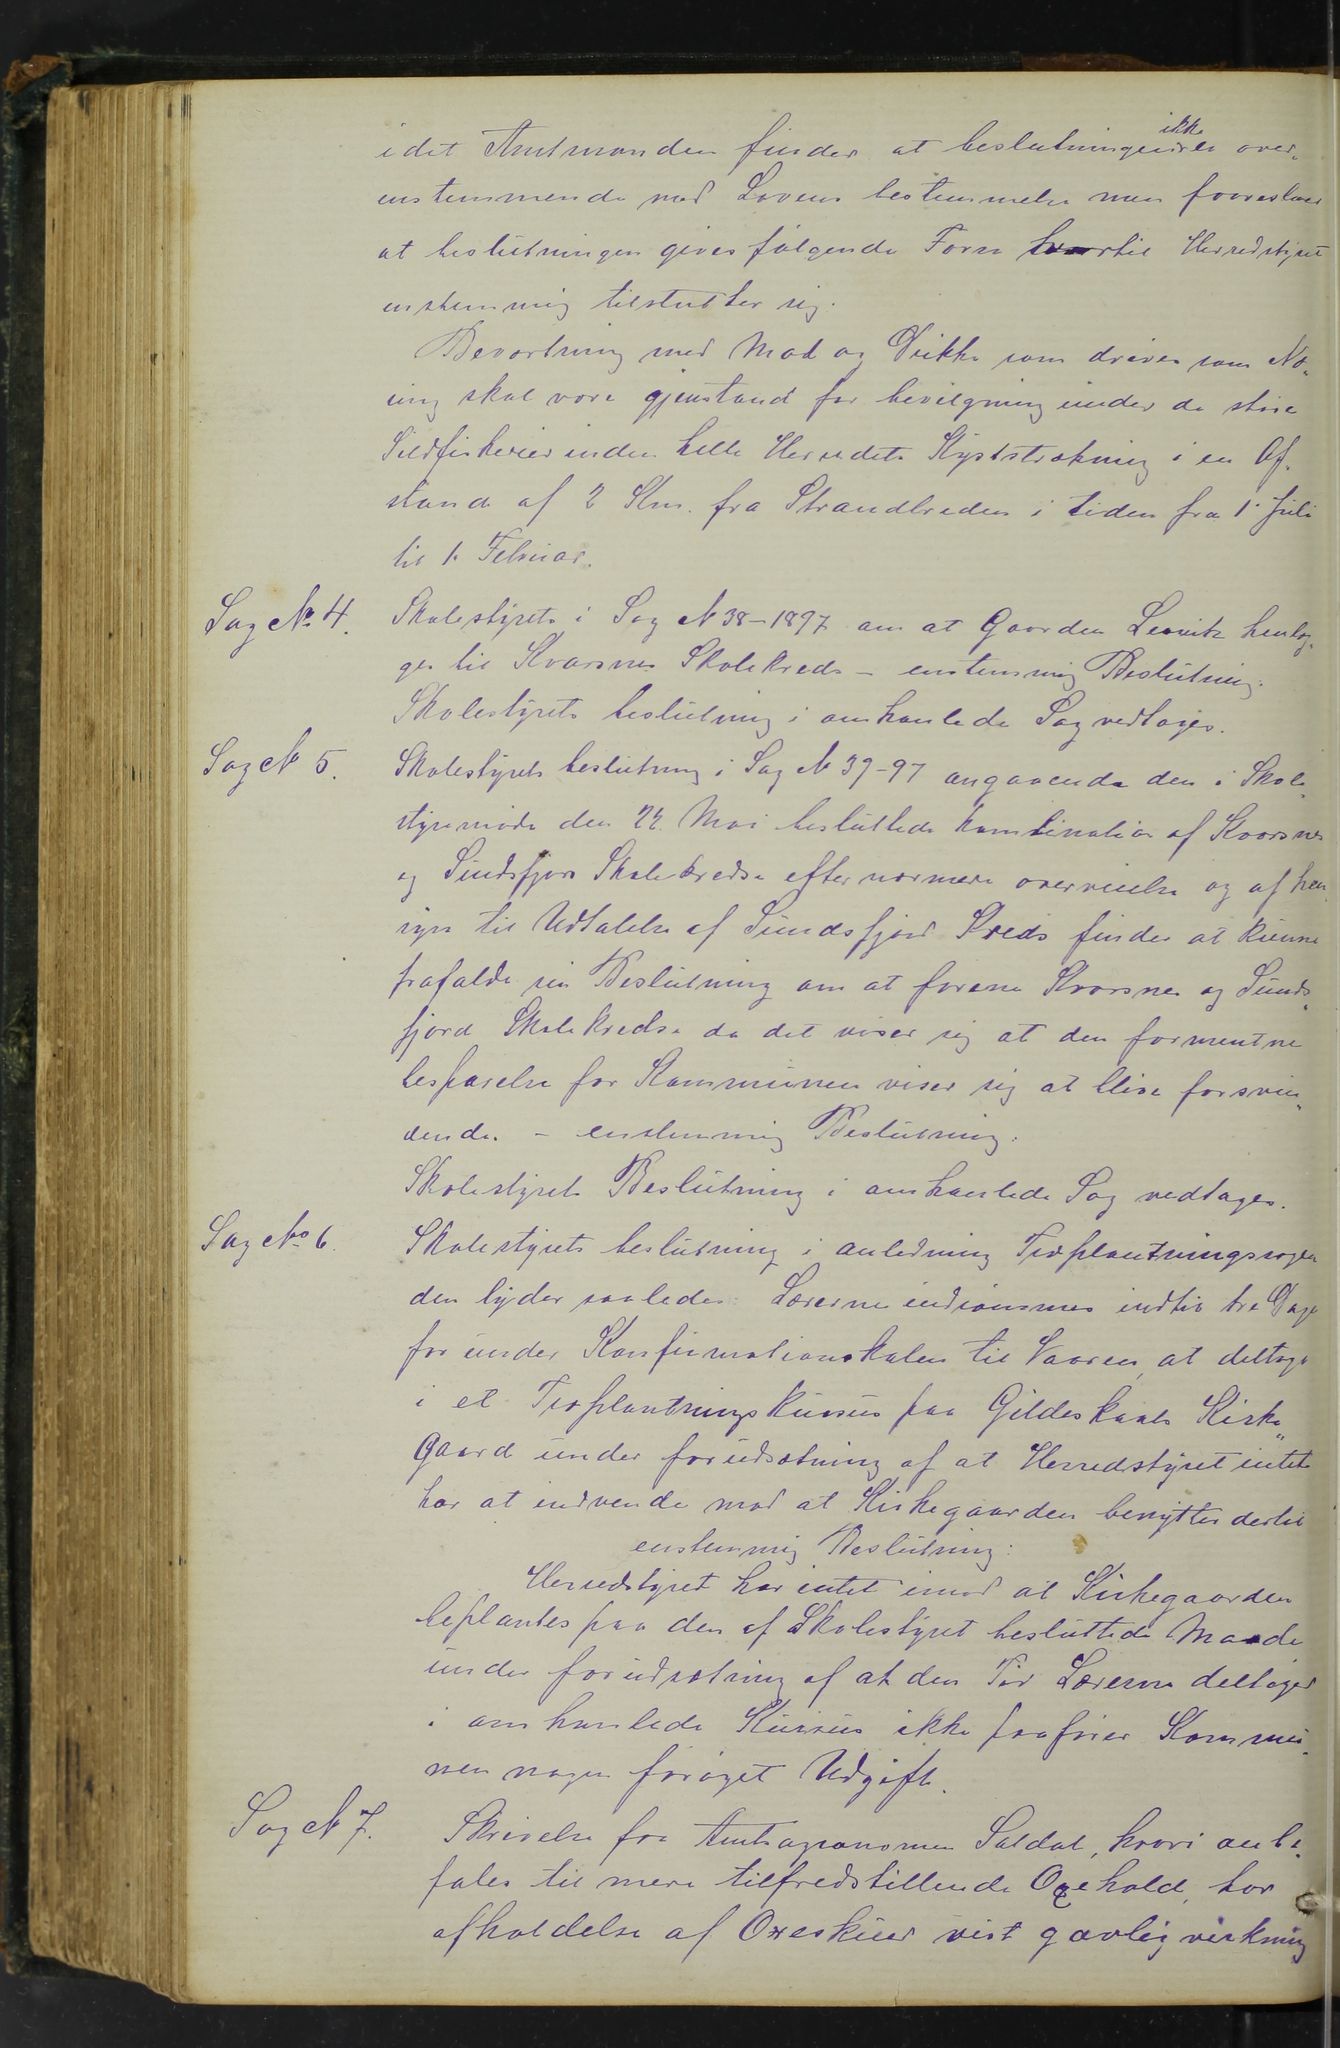 idet Amtmanden finder at beslutningen ikke er over„
enstemmende med Lovens bestemmelse men foreslaar
at beslutningen gives følgende Form hvortil Herredstyret
enstemmig tilslutter sig.
Bevertning med Mad og Drikke som drives som Næ„
ring skal være gjenstand for bevilgning under de store
Sildfiskerier inden hele Herredets Kyststrækning i en Af„
stand af 2 Km. fra Strandbreden i tiden fra 1. Juli
til 1. Februar.
Sag № 4. Skolestyrets i Sag № 38-1897 om at Gaarden henlæg„
ges til Kvarsnes Skolekreds – enstemmig Beslutning:
Skolestyrets beslutning i omhandlede Sag vedtages.
Sag № 5. Skolestyrets beslutning i Sag № 39-97 angaaende den i Skole„
styremøde den 22. Mai besluttede Kombination af Kvarsnes
og Sundsfjord Skolekredse efter nærmere overveielse og af hen„
syn til Udtalelse af Sundsfjord Kreds finder at kunne
frafalde sin Beslutning om at forene Kvarsnes og Sunds„
fjord Skolekredse da det viser sig at den formentne
besparelse for Kommunen viser sig at blive forsvin„
dende. – enstemmig Beslutning:
Skolestyrets Beslutning i omhandlede Sag vedtages.
Sag № 6. Skolestyrets beslutning i anledning Træplantningssagen
den lyder saaledes: Lærerne indrømmes indtil tre Dage
før under Konfirmationskolen til Vaaren, at deltage
i et Træplantningskursus paa Gildeskaals Kirke„
gaard under forudsætning af at Herredstyret intet
har at indvende mod at Kirkegaarden benyttes dertil
enstemmig Beslutning:
Herredstyret har intet imod at Kirkegaarden
beplantes paa den af Skolestyret besluttede Maade
under forudsætning af at den Tid Lærerne deltager
i omhandlede Kursus ikke paafører Kommu„
nen nogen forøget Udgift.
Sag № 7. Skrivelse fra Amtsagronomen Saldal, hvori anbe„
fales til mere tilfredstillende Oxehold, hor
afholdelse af Oxeskuer vist gavlig virkning